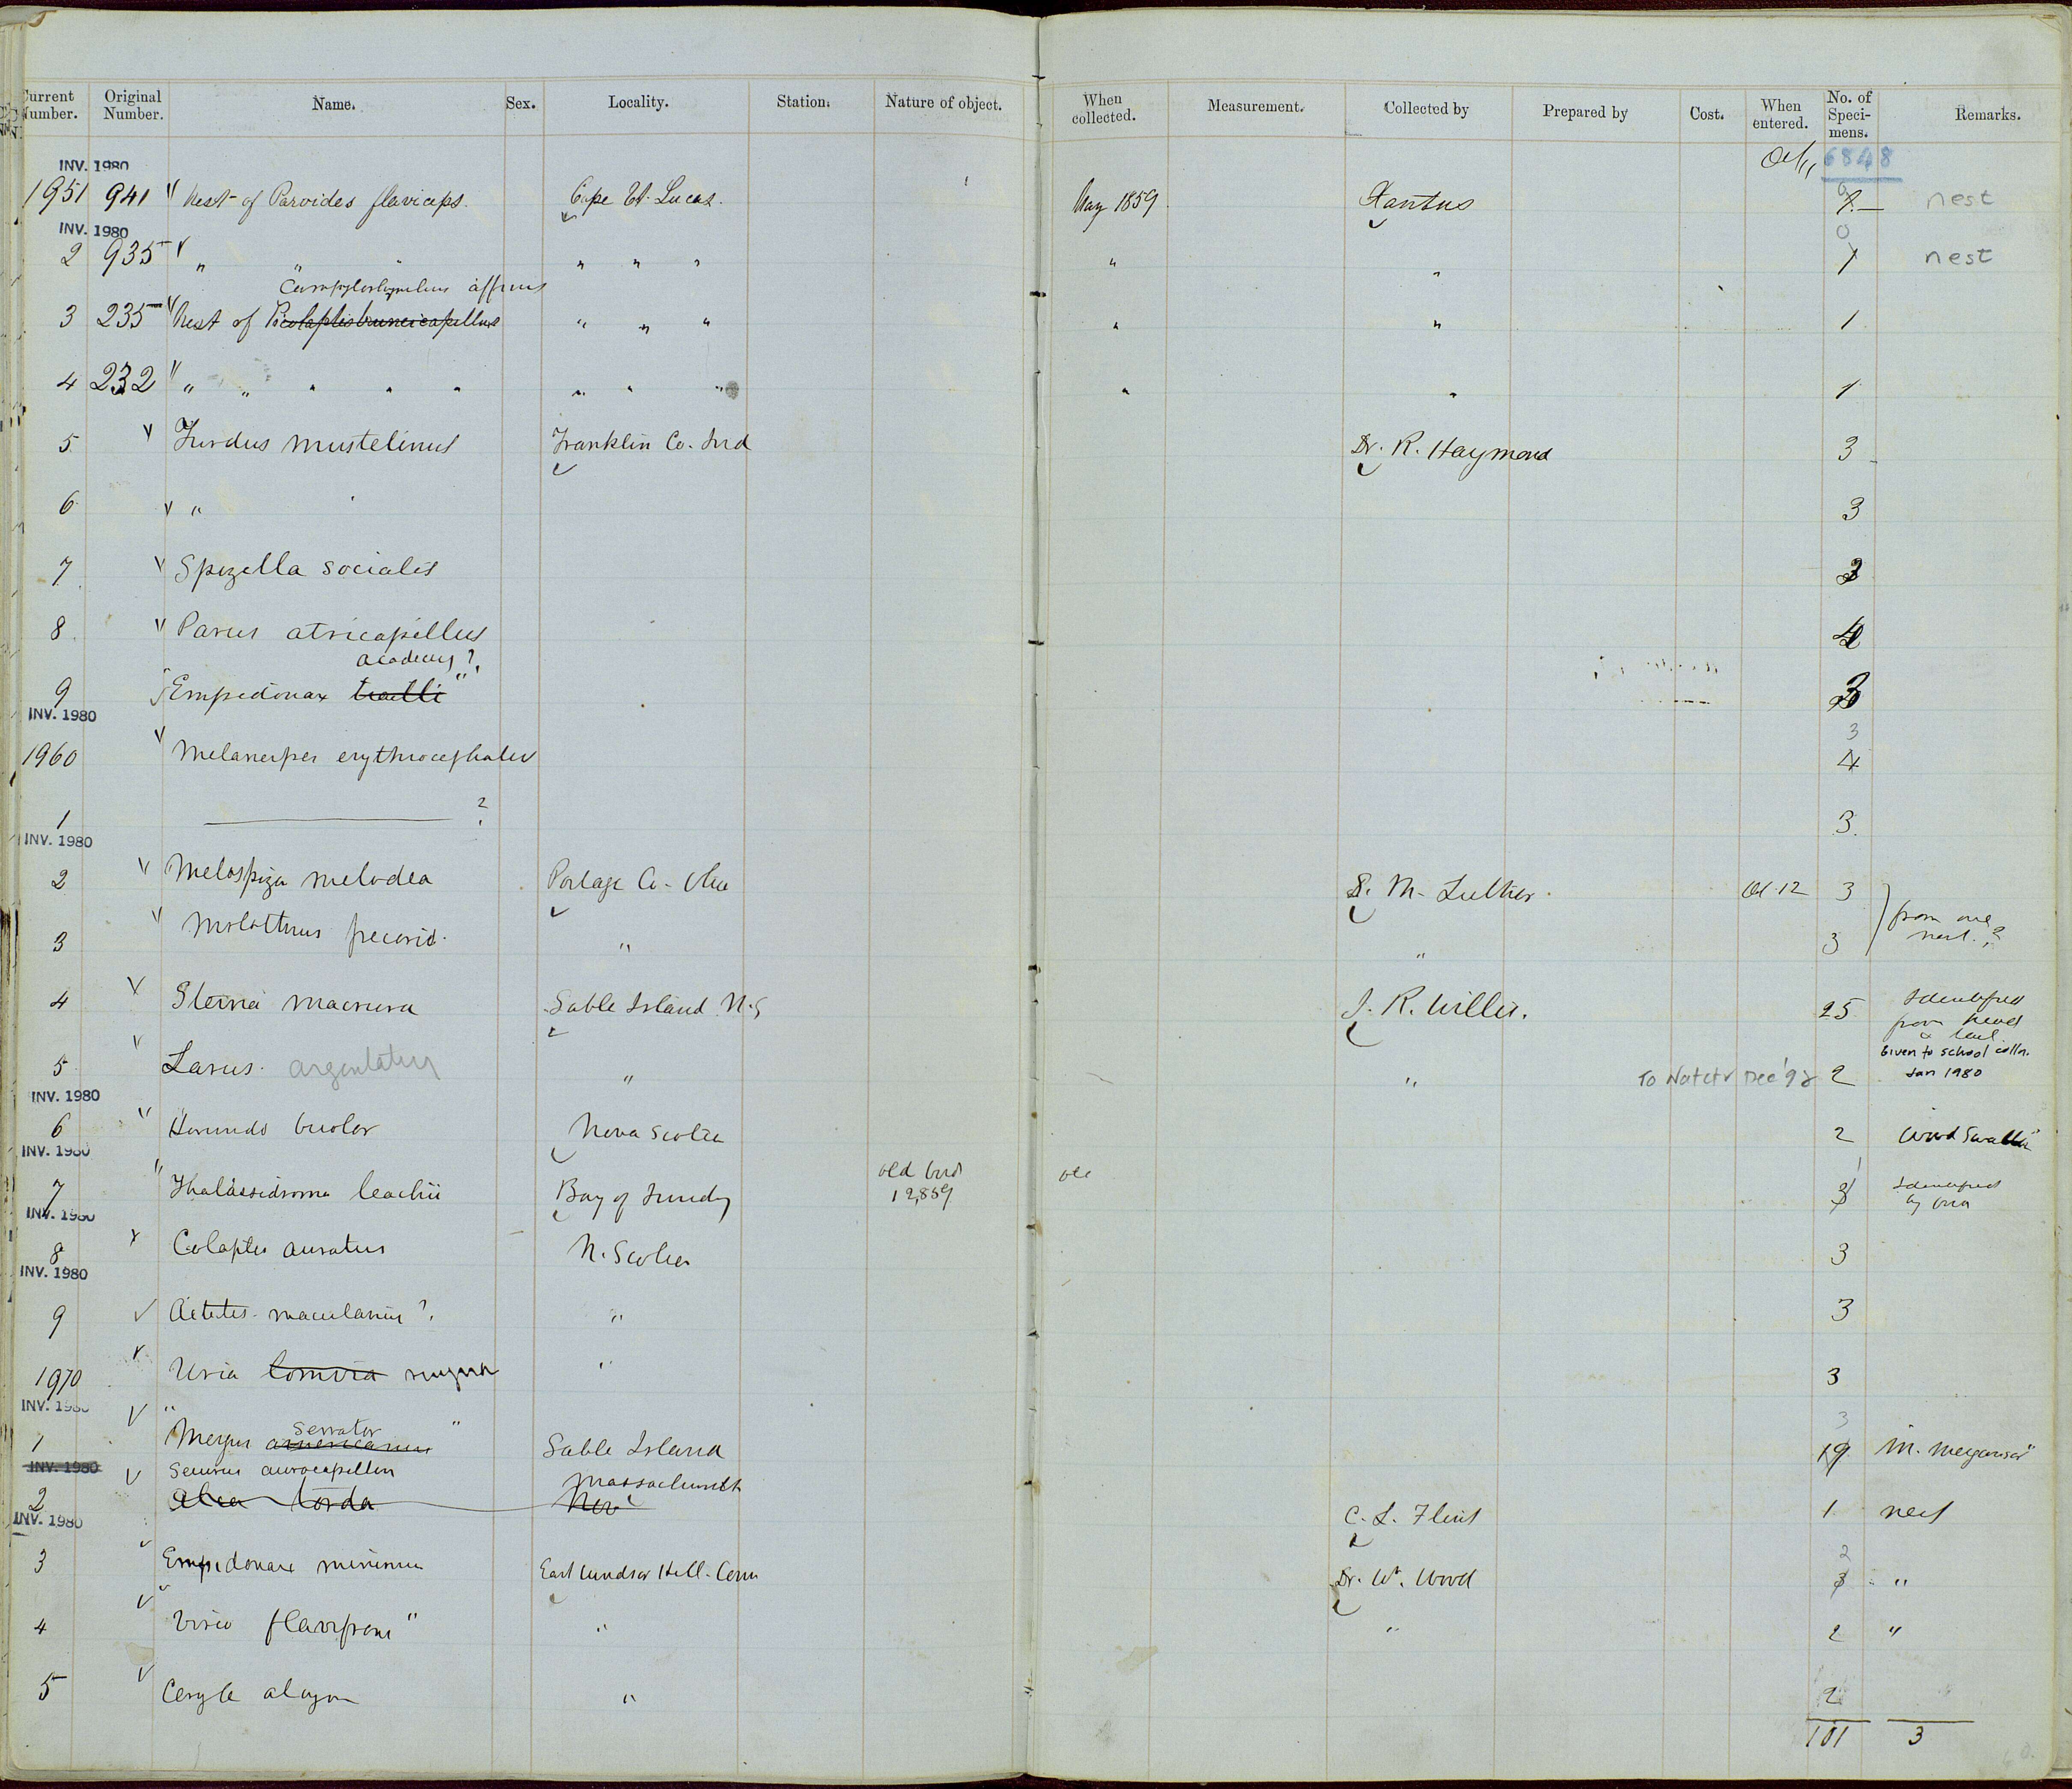 Current Number. Original Number. Name. Sex. Locality. Station. Nature of object. When collected. Measurement. Collected by Prepared by Cost. When entered. No. of Specimens. Remarks.
INV. 1980 Oct 11 6848
1951 941 Nest of Paroides flaviceps. Cape St. Lucas. May 1859 Xantus nest
INV. 1980 0
2 935 " " " " " " " " 1 nest
Campylorhynchus affinis
3 235 Nest of Picolaptes brunneicapillus " " " " " 1
4 232 " " " " " " " " " " 1
5 Turdus mustelinus Franklin Co. Ind Dr. R. Haymond 3
6 " 3
7 Spizella socialis 3
8 Parus atricapillus 4
acadicus?
9 Empidonax trailli " 3
INV. 1980
3
1960 Melanerpes erythrocephalus 4
1 ? 3.
INV. 1980
2 Melospiza melodea Portage Co. Ohio S. M. Luther. Oct 12 3
from one nest.?
3 Molothrus pecoris. " " 3
4 Sterna macrura Sable Island N.S J. R. Willis. 25 Identified from head & tail.
Given to school colln. Jan 1980
5 Larus. argentatus " " To Nat Dec '92 2
INV. 1980
6 Hirundo bicolor Nova Scotia 2 Wood Swallow
INV. 1980
7 Thalassidroma leachii Bay of Fundy old bird 12,859 3 Identified by bird
INV. 1980
8 Colaptes auratus N. Scotia 3
INV. 1980
9 Actitis macularius? " 3
1970 Uria lomvia ringvia " 3
INV. 1980
serrator 3
1 Mergus americanus " Sable Island 19 M. merganser"
INV. 1980
Seiurus aurocapillus Massachusetts
2 Alca torda Nov C. L. Flint 1 nest
INV. 1980
2
3 Empidonax minimus East Windsor Hill. Conn Dr. W. Wood 3 "
4 Vireo flavifrons " " " 2 "
5 Ceryle alcyon " 2
101 3